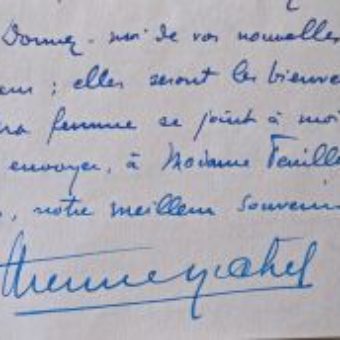 Donnez-moi de vos nouvelles
; elles seront les bienve
ma femme se joint à moi
envoyer, à Madame Feuille
, notre meilleur souvenir